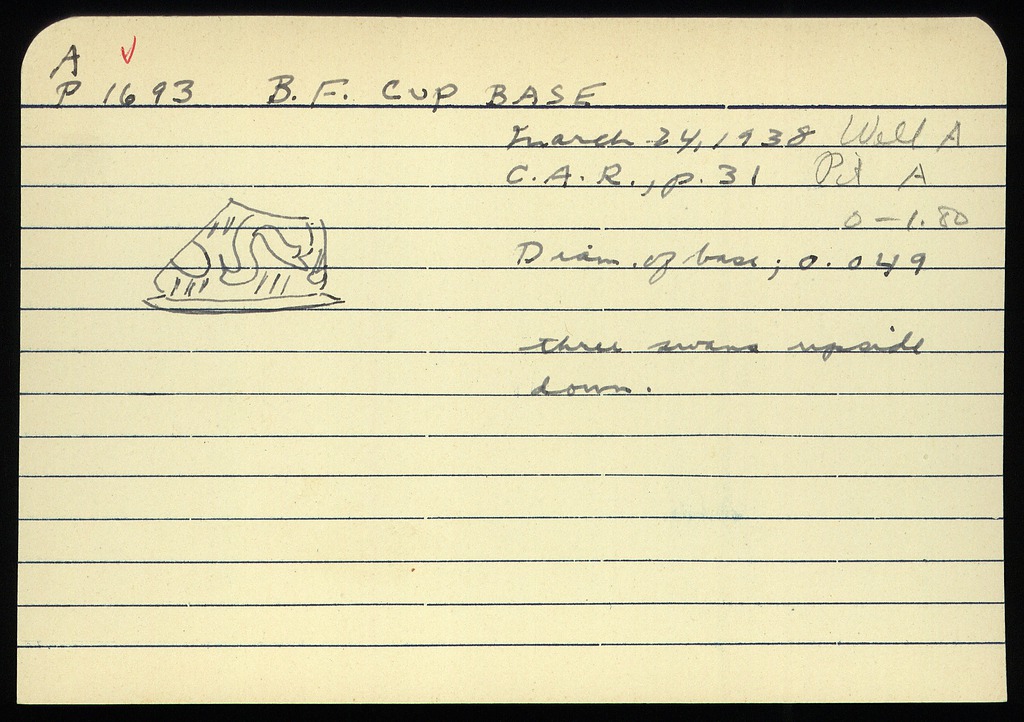 A
P 1693 B. F. CUP BASE
March 24, 1938 Well A
C. A. R., p. 31 Pit A
0-1.80
Diam. of base; 0.049
three swans upside
down.